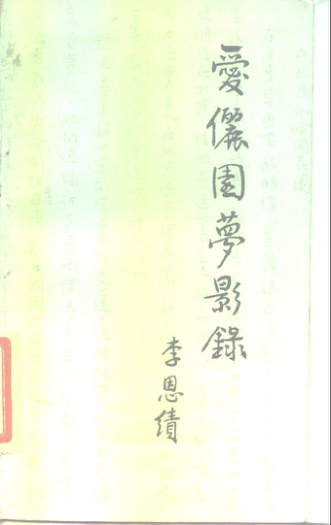 愛儷園夢影錄
李恩績